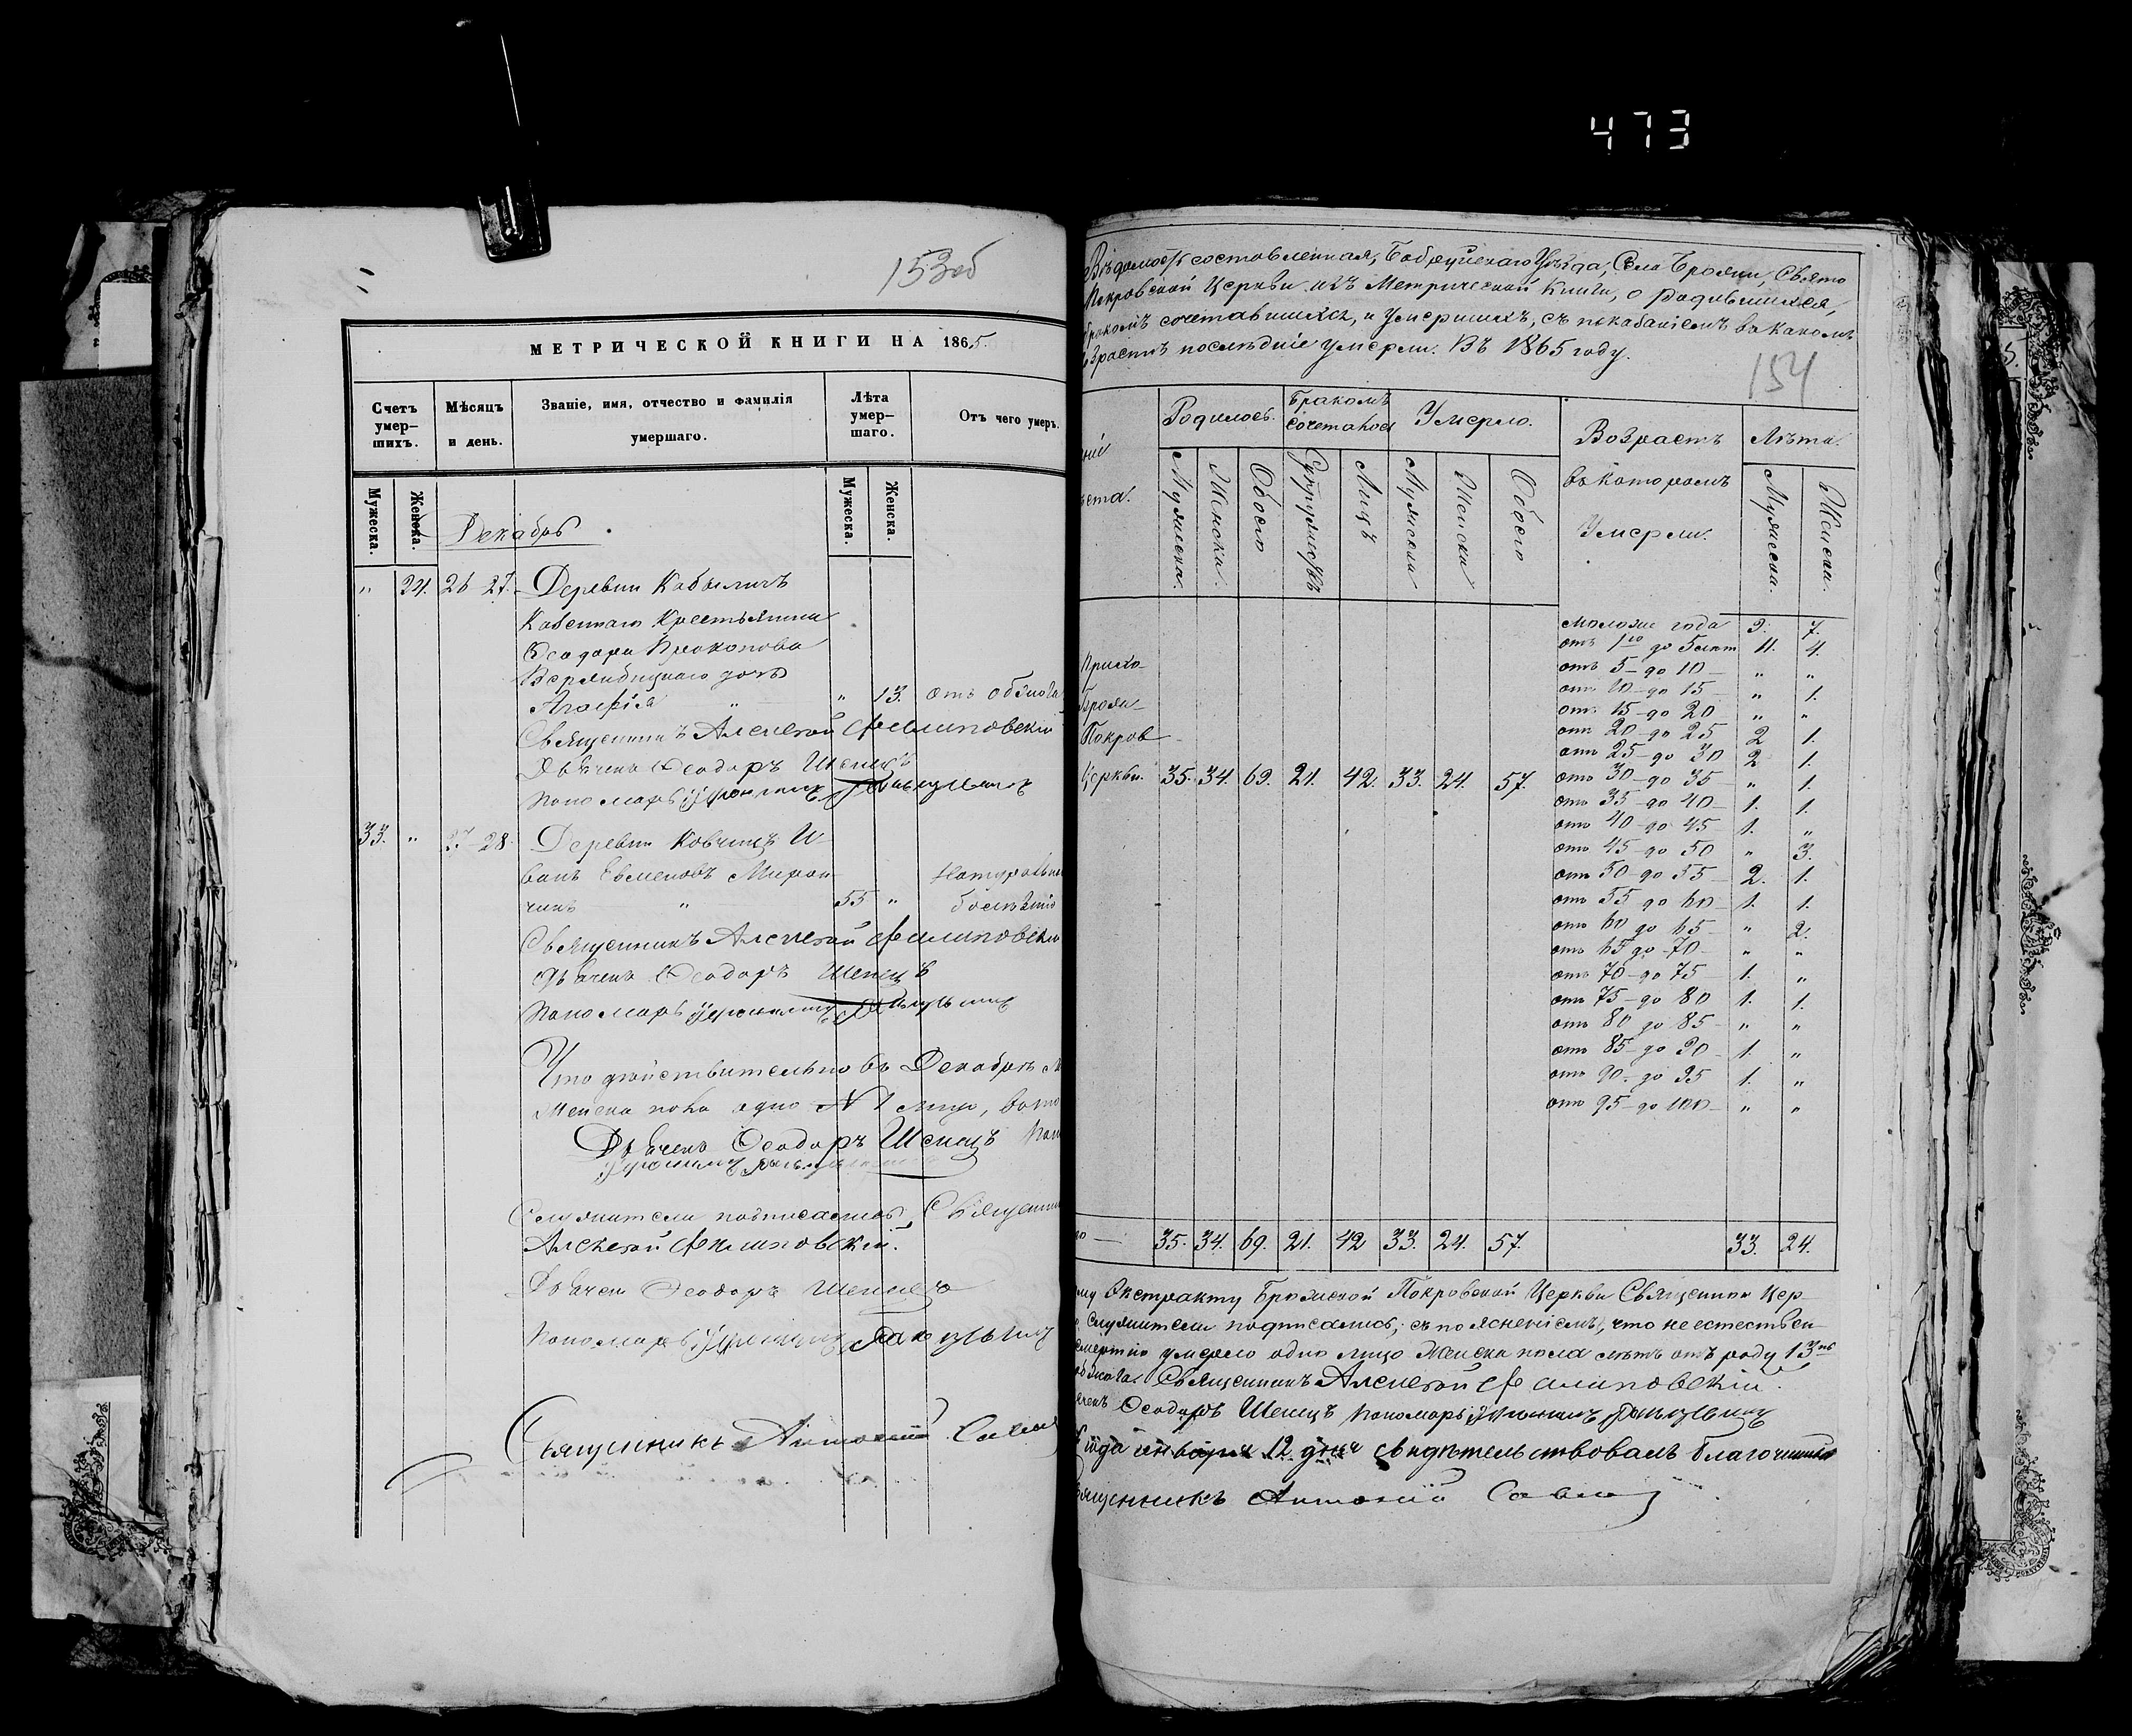 473
153об
МЕТРИЧЕСКОЙ КНИГИ НА 1865.
Счетъ умер-шихъ.
Мѣсяцъ и день.
Званіе, имя, отчество и фамилія умершаго.
Лѣта умер-шаго.
Отъ чего умеръ.
Мужеска.
Женска.
Мужеска.
Женска.
Декабрь
" 24. 26 27. Деревни Кабыличъ
Казеннаго Крестьянина
Ѳеодора Прокопова
дочь
Агафія " " 13. отъ обжога
Священникъ Алексѣй Филиповскій
Дьячекъ Ѳеодоръ Шенецъ
Пономарь
33. " 27 28. Деревни Ковчицъ И-
ванъ Евменовъ Мирон-
чикъ " 55 "
Священникъ Алексѣй Филиповскій
Дьячекъ Ѳеодоръ Шенецъ
Пономарь
Что дѣйствительно въ Декабрѣ
Женска пола одно № 1 лицо,
Дьячекъ Ѳеодоръ Шенецъ
служители подписались, Священник
Алексѣй Филиповскій.
Дьячекъ Ѳеодоръ Шенецъ
Пономарь
Священникъ Антоній
Вѣдомость составленная, Бобруйскаго Уѣзда, Села Брожи, Свято
Покровской Церкви изъ Метрической Книги, о Родившихся,
бракомъ сочетавшихся, и Умершихъ, съ показаніемъ въ какомъ
возрастѣ послѣдніе умерли. Въ 1865 году.
154
Родилось.
Бракомъ сочеталось
Умерло.
Возрастъ въ которомъ Умерли.
Лѣта.
Мужеска.
Женска.
Обоего
Супружествъ
Лицъ
Мужеска
Женска
Обоего
Мужеска.
Женска.
Покров
Церкви. 35. 34. 69. 21. 42. 33. 24. 57.
моложе года 9. 7.
отъ 1го до 5 лѣт 11. 4.
отъ 5 до 10 " "
отъ 10 до 15 " 1.
отъ 15 до 20 " "
отъ 20 до 25 2 1.
отъ 25 до 30 2 1.
отъ 30 до 35 " 1.
отъ 35 до 40 1. 1.
отъ 40 до 45 1. "
отъ 45 до 50 " 3.
отъ 50 до 55 2. 1.
отъ 55 до 60 1. 1.
отъ 60 до 65 " 2.
отъ 65 до 70 " "
отъ 70 до 75 1. "
отъ 75 до 80 1. 1.
отъ 80 до 85 " "
отъ 85 до 90 1. "
отъ 90 до 95 1. "
отъ 95 до 100 " "
35. 34. 69. 21. 42 33. 24. 57. 33. 24.
Экстракту Брожской Покровской Церкви Священник Цер-
служители подписались, съ поясненіемъ, что неестествен-
смертію умерло одно лицо Женска пола лѣтъ отъ роду 13ть
обжога. Священникъ Алексѣй Филиповскій.
Ѳеодоръ Шенецъ Пономарь
года января 12 дня свидѣтельствовалъ благочинный
Священникъ Антоній